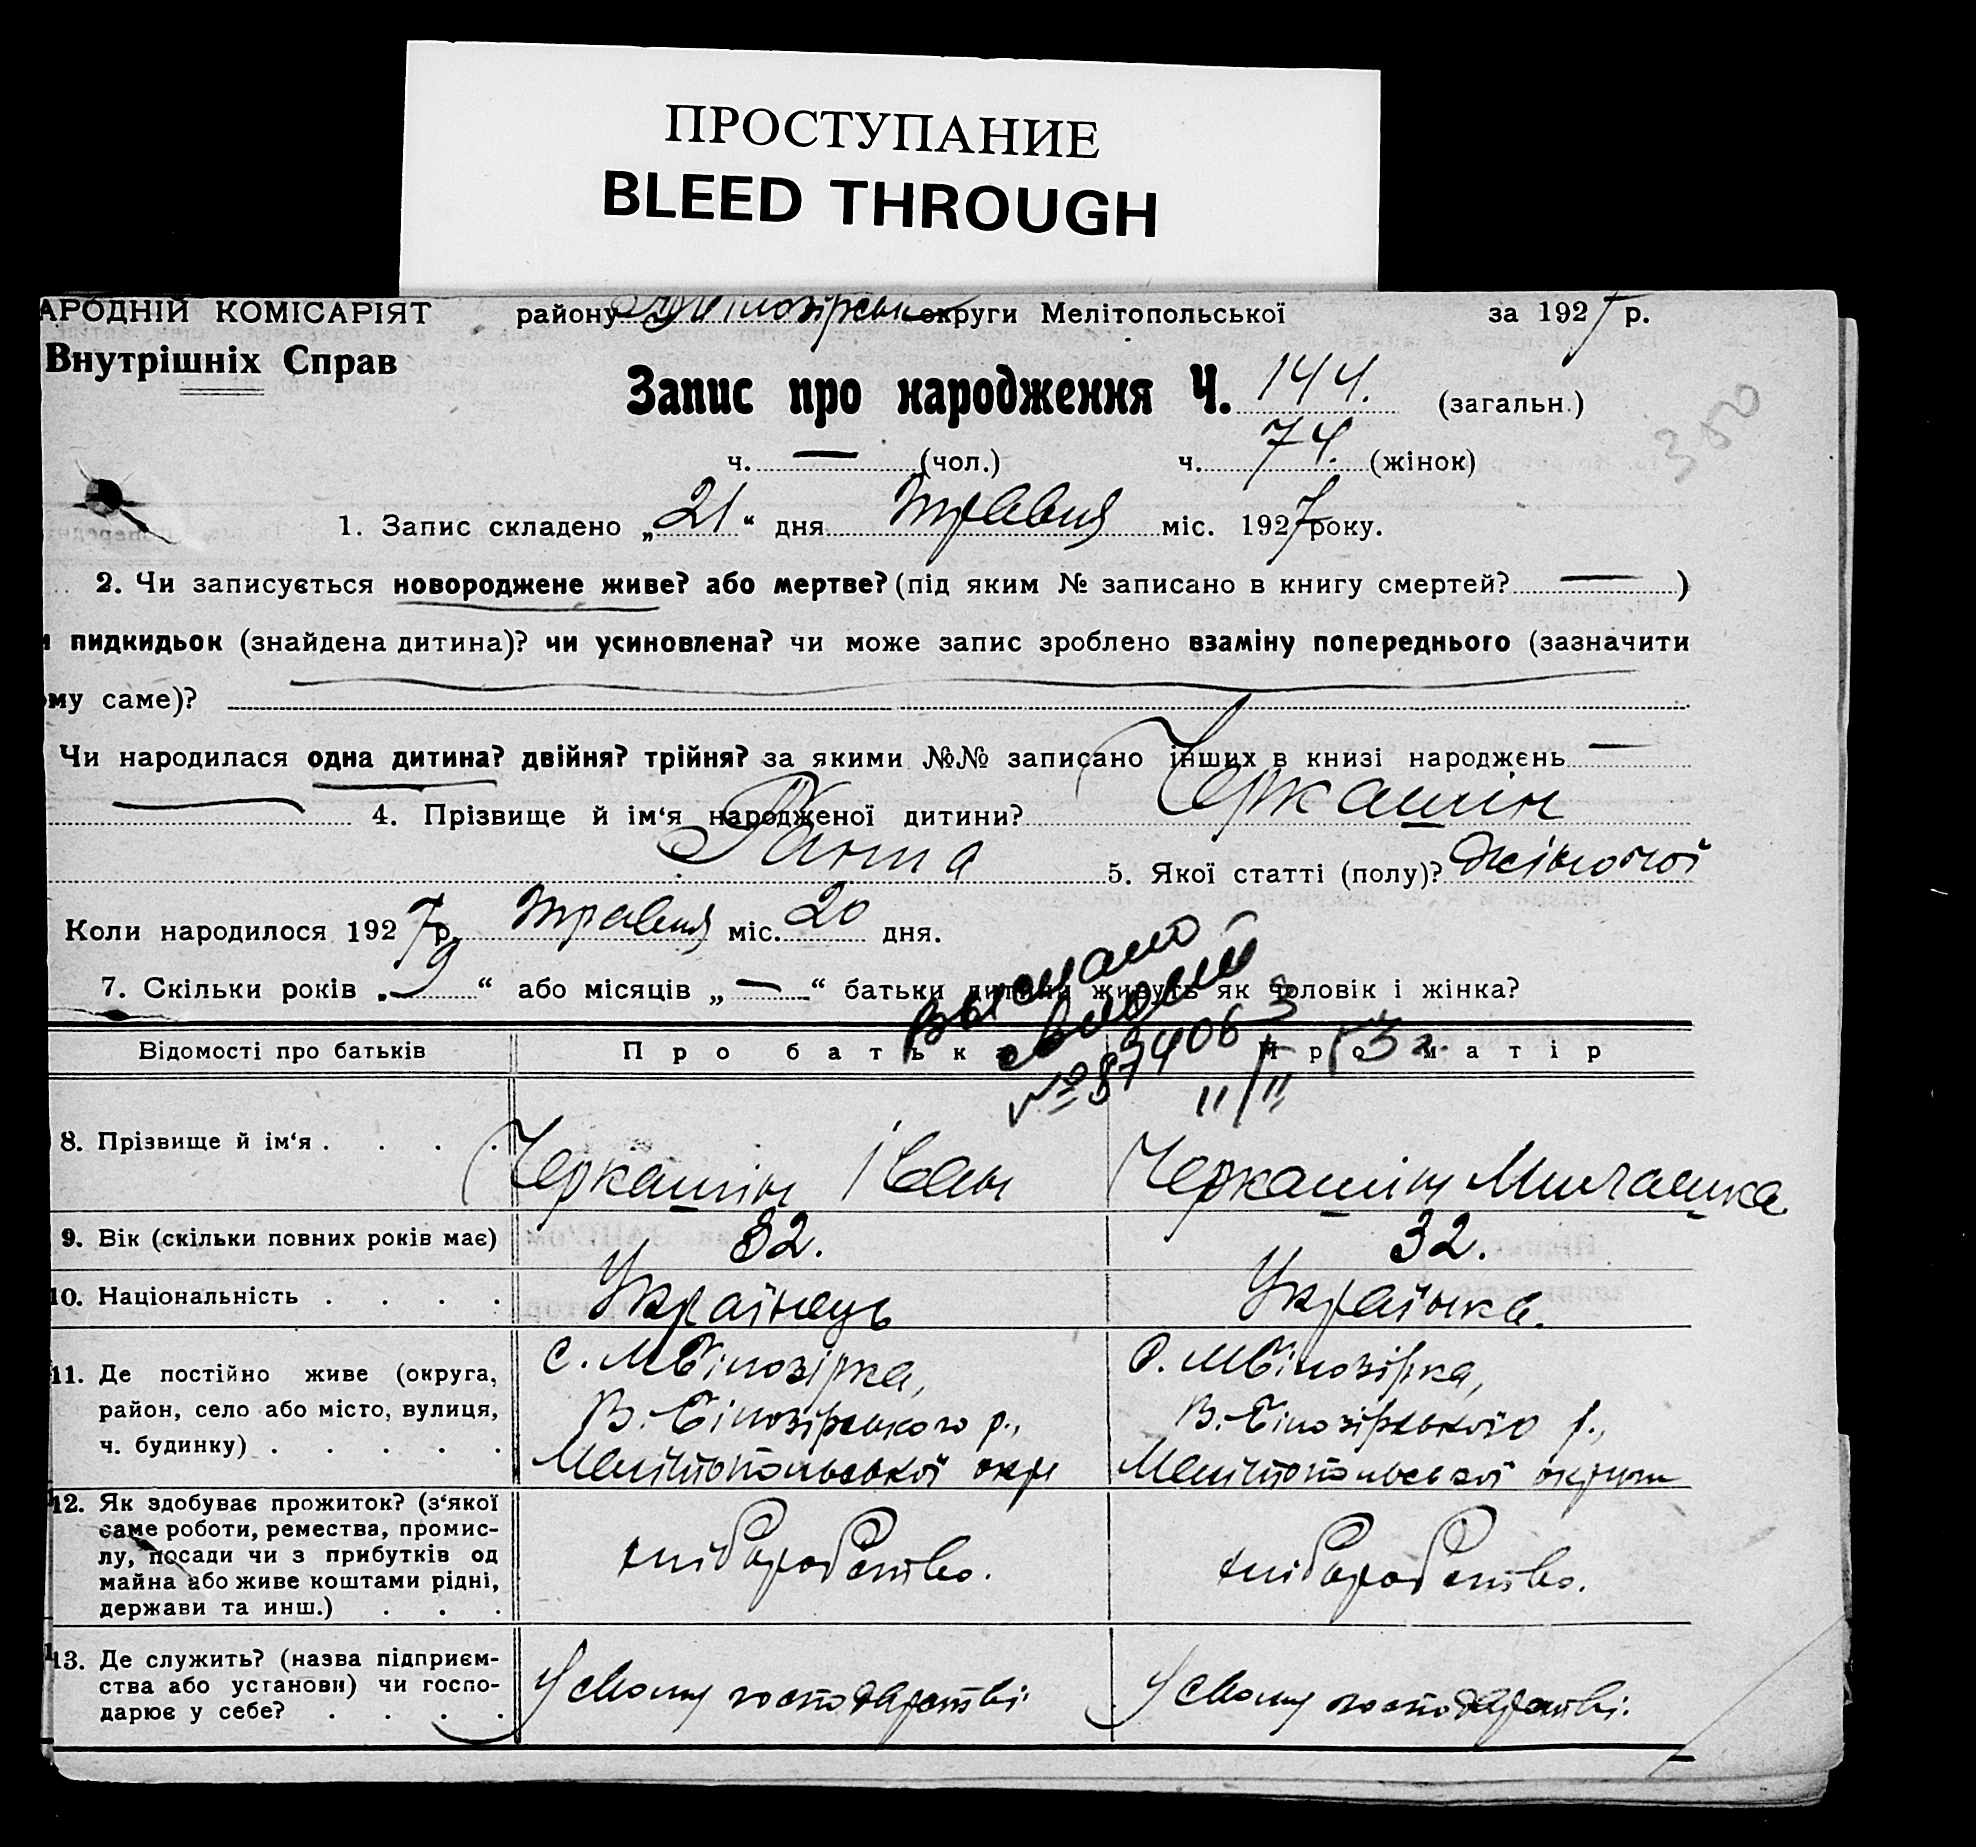 ПРОСТУПАНИЕ
BLEED THROUGH
АРОДНІЙ КОМІСАРІЯТ району округи Мелітопольської за 1927 р.
Внутрішніх Справ
Запис про народження Ч. 144. (загальн.)
350
ч. — (чол.) ч. 74. (жінок)
1. Запис складено „21“ дня травня міс. 1927 року.
2. Чи записується новороджене живе? або мертве? (під яким № записано в книгу смертей? — )
и пидкидьок (знайдена дитина)? чи усиновлена? чи може запис зроблено взаміну попереднього (зазначити
ому саме)?
Чи народилася одна дитина? двійня? трійня? за якими №№ записано інших в книзі народжень —
4. Прізвище й ім‘я народженої дитини? Черкашін
Ганна 5. Якої статті (полу)? жіночої
Коли народилося 1927 р. травня міс. 20 дня.
7. Скільки років „9“ або місяців „—“ батьки дитини живуть як чоловік і жінка?
№ 874063
Відомості про батьків Про батька Про матір
8. Прізвище й ім‘я . . . . Черкашін Іван Черкашін
9. Вік (скільки повних років має) 32. 32.
10. Національність . . . . Українець Українка.
11. Де постійно живе (округа, с. МБілозірка, с. МБілозірка,
район, село або місто, вулиця, В.-Білозірського р., В.-Білозірського р.,
ч. будинку) . . . . . Мелітопольської окр Мелітопольської округи
12. Як здобуває прожиток? (з‘якої
саме роботи, ремества, промис-
лу, посади чи з прибутків од хліборобство. хліборобство.
майна або живе коштами рідні,
держави та инш.) . . .
13. Де служить? (назва підприєм-
ства або установи) чи госпо- У свому господарстві. У свому господарстві.
дарює у себе? . . . .